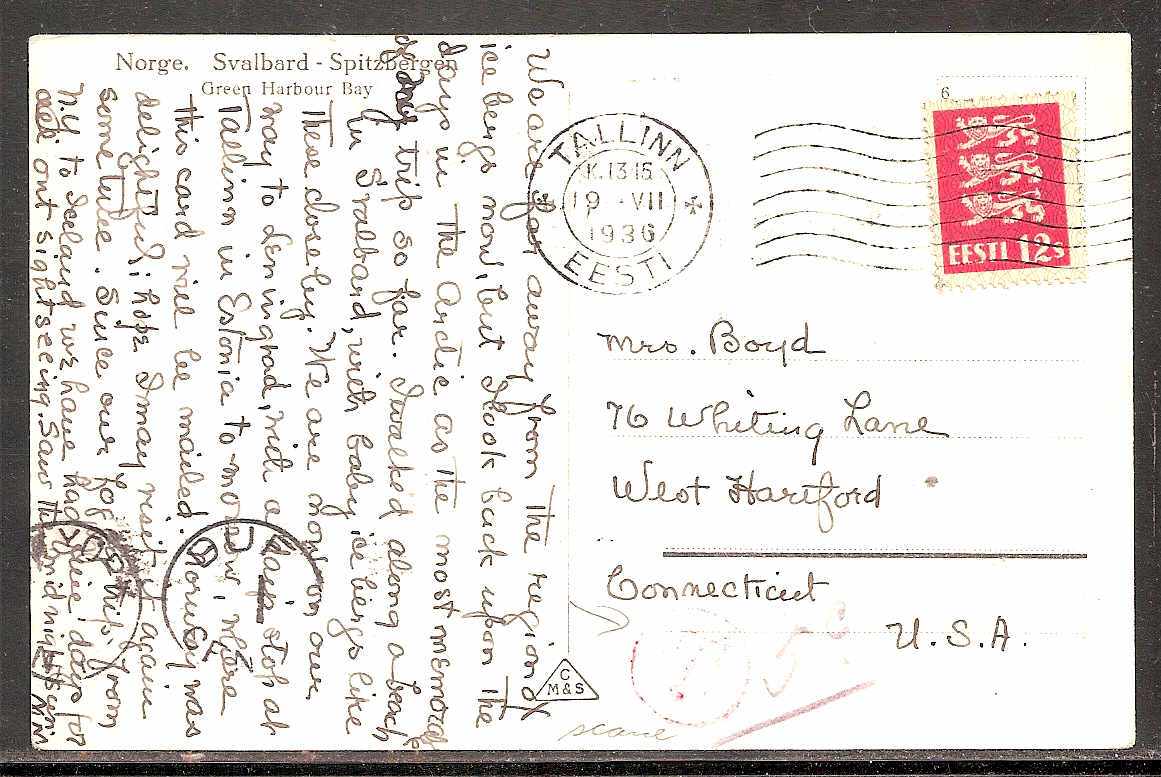 Norge. Svalbard - Spitzbergen
Green Harbour Bay
We are far away from the region of
ice bergs now, but I look back upon the
days in the Arctic as the most memorable
of any trip so far. I walked along a beach
in Svalbard, with baby ice bergs like
these close by. We are now on our
way to Leningrad, with a day's stop at
Tallinn in Estonia to-morrow, where
this card will be mailed. Norway was
delightful; hope I may visit it again
some time. Since our foggy trip from
N.Y. to Iceland we have had fine days for
all out sightseeing. Saw the midnight sun
TALLINN
K. 13-15
19 - VII
1936
EESTI
6
EESTI 12s
Mrs. Boyd
76 Whiting Lane
West Hartford
Connecticut
U.S.A.
T
5c
C
M & S